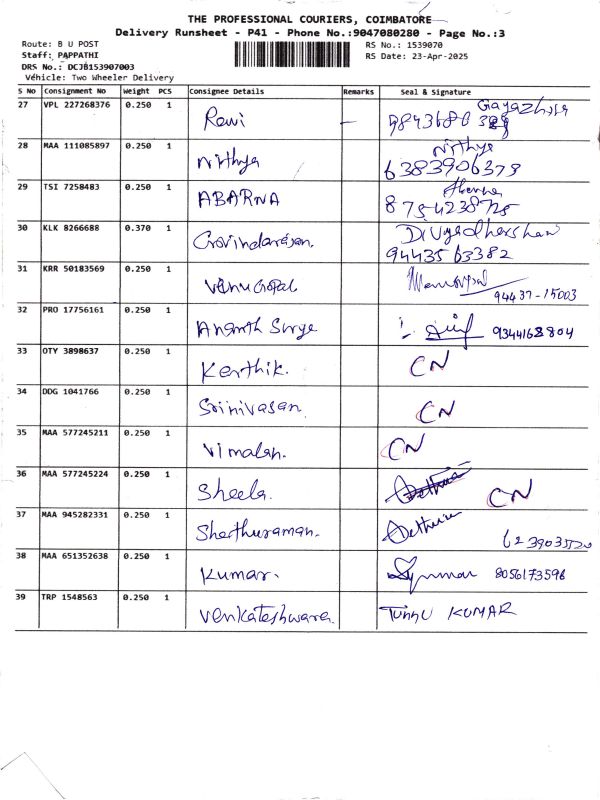 THE PROFESSIONAL COURIERS, COIMBATORE
Delivery Runsheet - P41 - Phone No.:9047080280 - Page No.:3
Route: B U POST
RS No.: 1539070
Staff: PAPPATHI
RS Date: 23-Apr-2025
DRS No.: DCJB153907003
Vehicle: Two Wheeler Delivery
S No Consignment No Weight PCS Consignee Details Remarks Seal & Signature
27 VPL 227268376 0.250 1 Ravi —
28 MAA 111085897 0.250 1 Nithya Nithya
6383906379
29 TSI 7258483 0.250 1 ABARNA
30 KLK 8266688 0.370 1 Govindarasan. Divyadharshan
94435 63382
31 KRR 50183569 0.250 1 Venu Gopal
94437-15003
32 PRO 17756161 0.250 1 Ananth 9344168804
33 OTY 3898637 0.250 1 Karthik. CN
34 DDG 1041766 0.250 1 Srinivasan CN
35 MAA 577245211 0.250 1 Vimalan. CN
36 MAA 577245224 0.250 1 Sheela. CN
37 MAA 945282331 0.250 1 Sethuraman.
38 MAA 651352638 0.250 1 Kumar. 8056173596
39 TRP 1548563 0.250 1 Venkateshwara. KUMAR